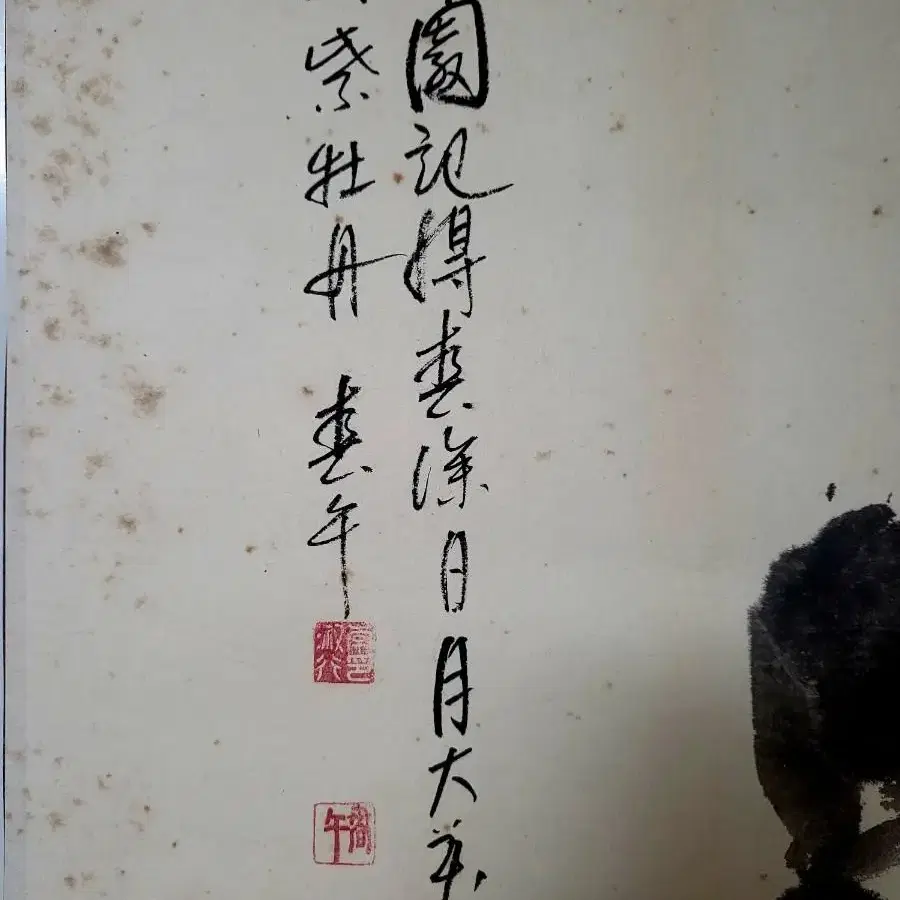 園記得春深日月大
紫牡丹 春午
春午